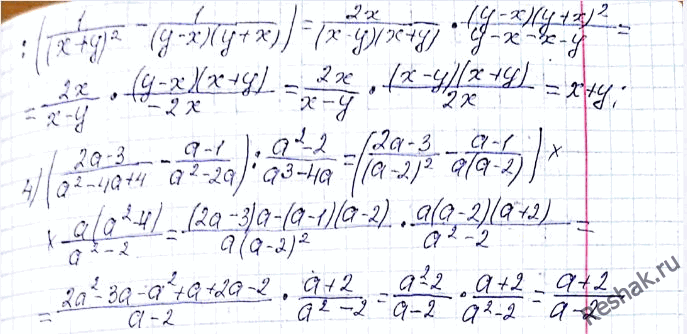 : (1/(x+y)² - 1/((y-x)(y+x))) = 2x/((x-y)(x+y)) · (y-x)(y+x)²/(y-x-x-y) =
= 2x/(x-y) · (y-x)(x+y)/(-2x) = 2x/(x-y) · (x-y)(x+y)/(2x) = x+y;
4) ((2a-3)/(a²-4a+4) - (a-1)/(a²-2a)) : (a²-2)/(a3-4a) = ((2a-3)/(a-2)² - (a-1)/(a(a-2))) ×
× a(a²-4)/(a²-2) = ((2a-3)a-(a-1)(a-2))/(a(a-2)²) · a(a-2)(a+2)/(a²-2) =
= (2a²-3a-a²+a+2a-2)/(a-2) · (a+2)/(a²-2) = (a²-2)/(a-2) · (a+2)/(a²-2) = (a+2)/(a-2)
Reshak.ru